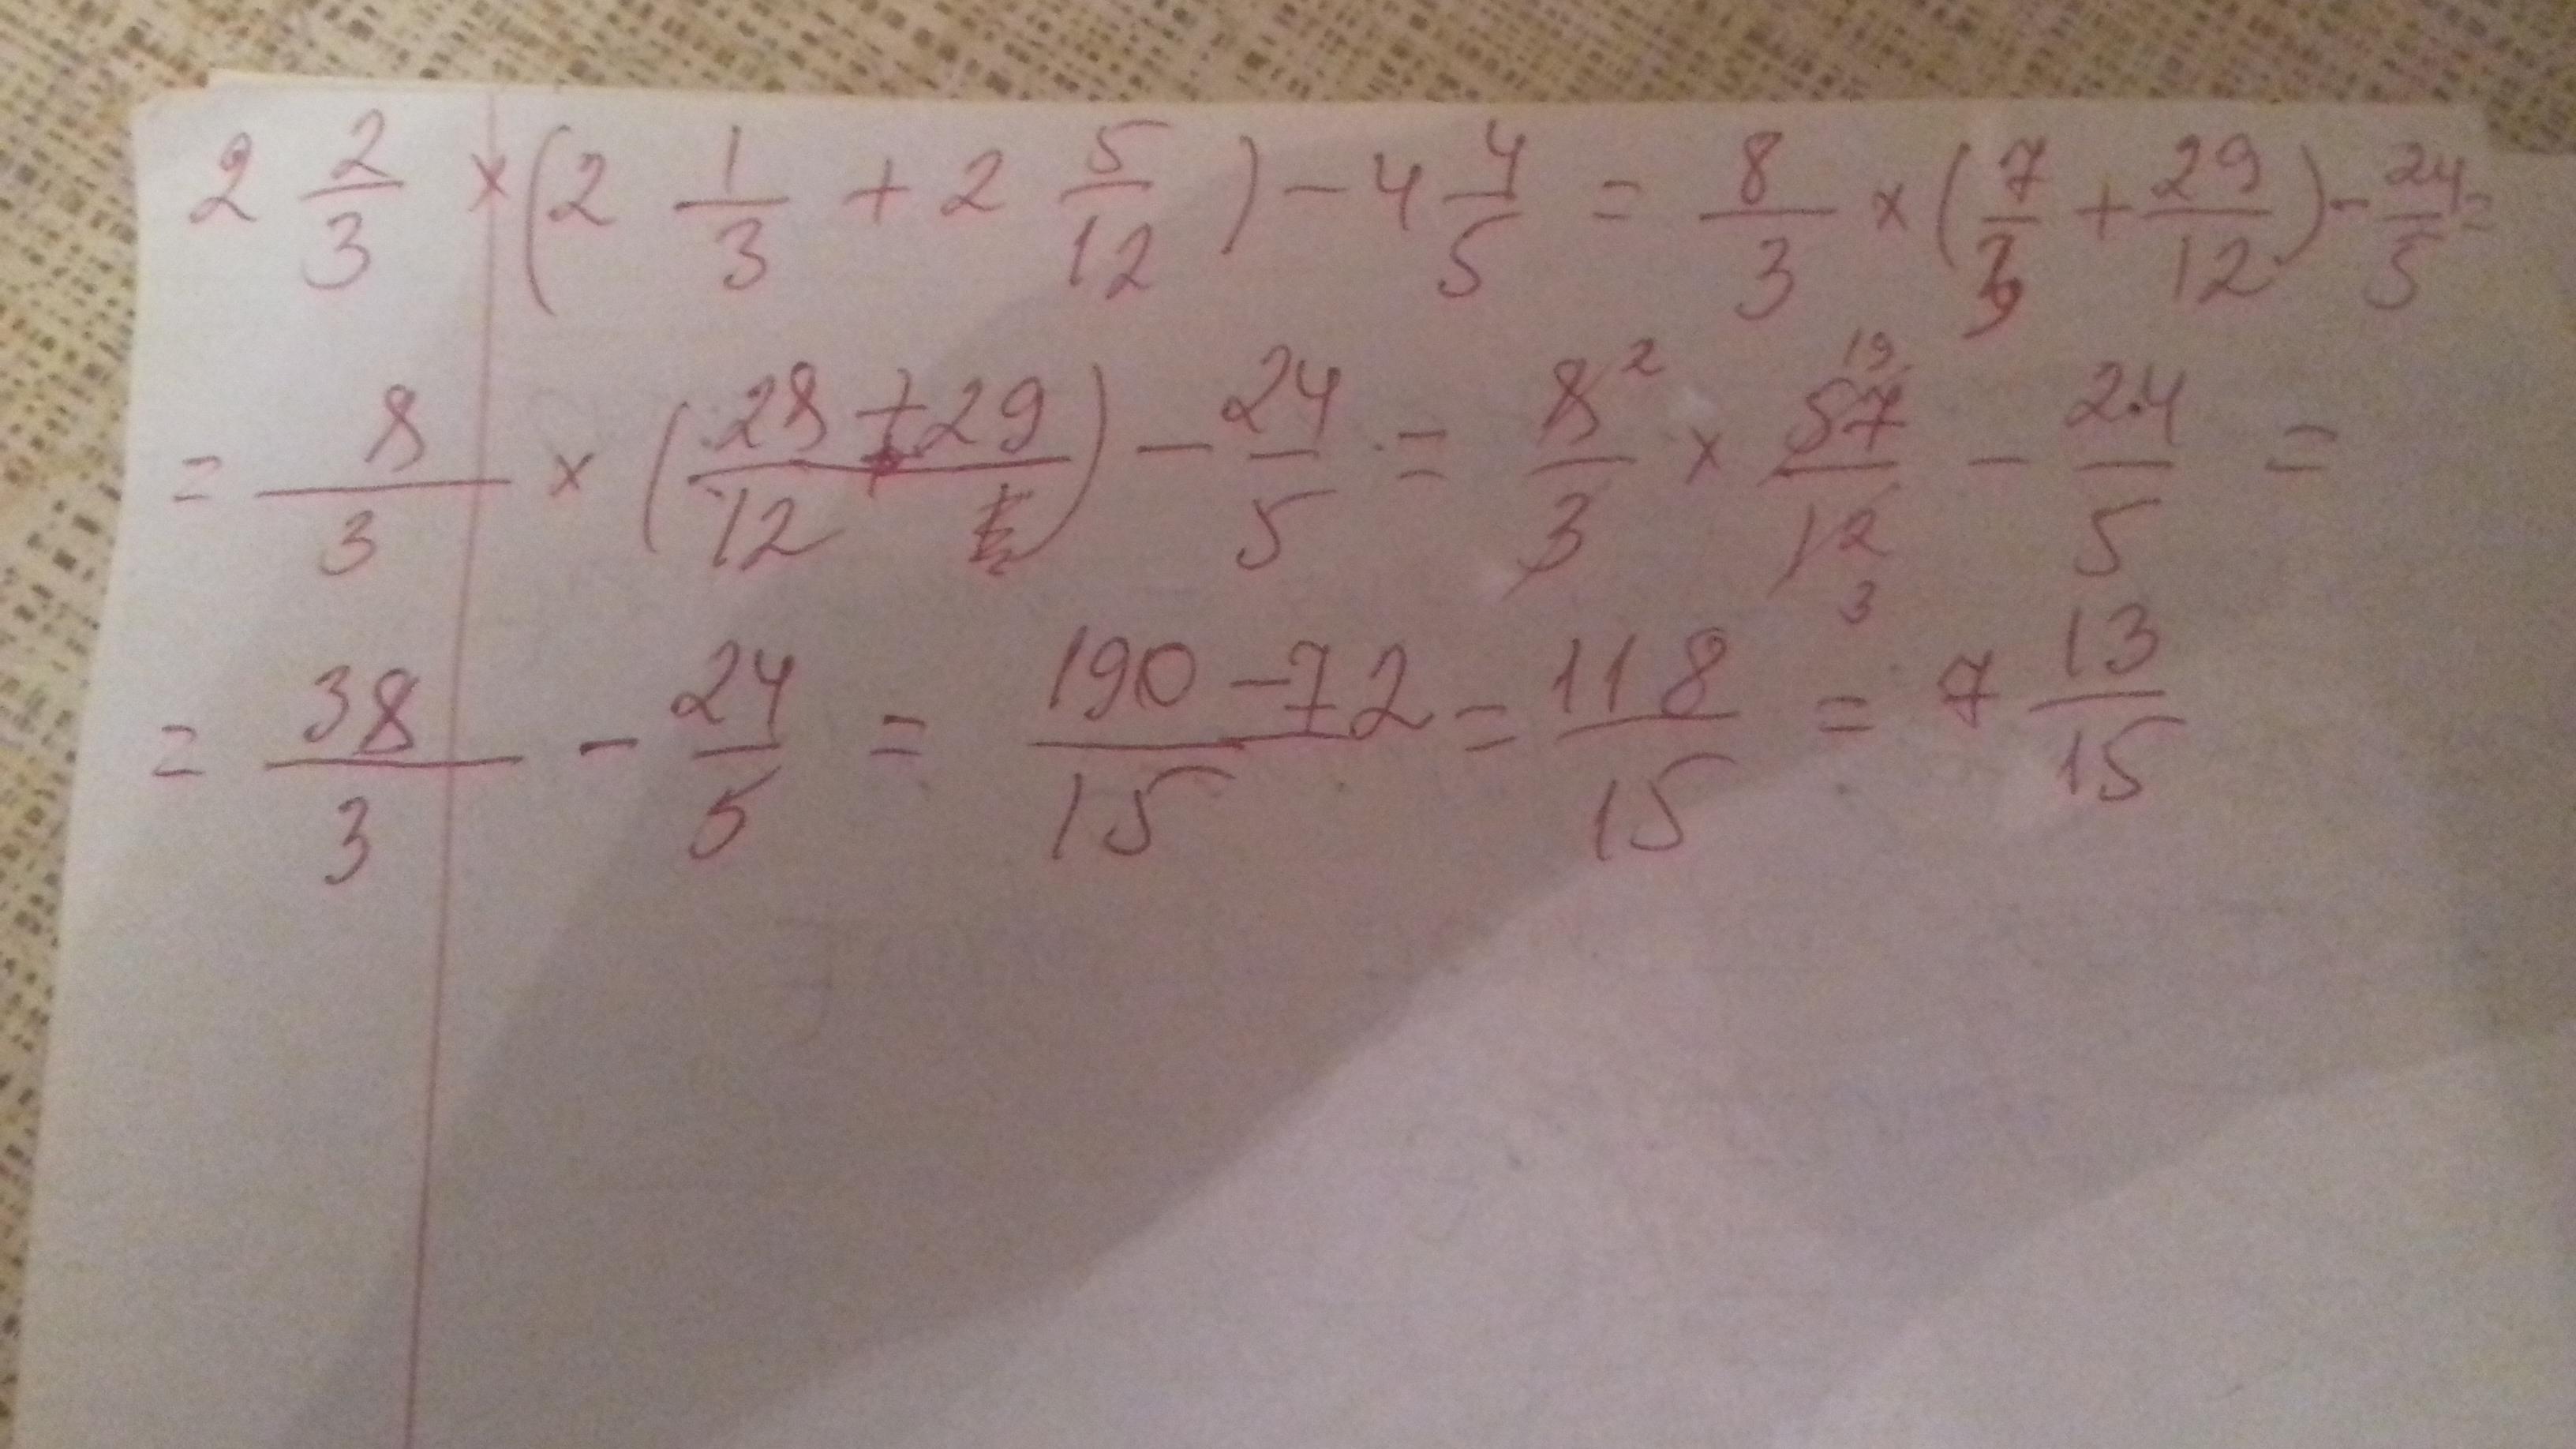 2 2/3 × (2 1/3 + 2 5/12) - 4 4/5 = 8/3 × (7/3 + 29/12) - 24/5 =
= 8/3 × ((28 + 29)/12) - 24/5 = 8²/3 × 57 19/12 3 - 24/5 =
= 38/3 - 24/5 = (190 - 72)/15 = 118/15 = 7 13/15